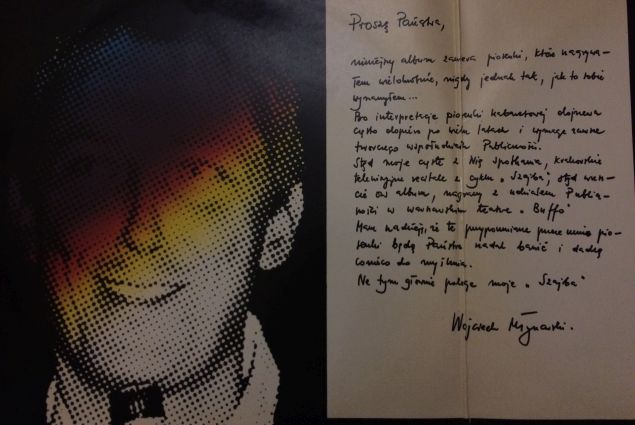 Proszę Państwa,
niniejszy album zawiera piosenki, które nagrywa-
łem wielokrotnie, nigdy jednak tak, jak to sobie
wymarzyłem...
Bo interpretacja piosenki kabaretowej dojrzewa
często dopiero po wielu latach i wymaga zawsze
twórczego współudziału Publiczności.
Stąd moje częste z Nią spotkania, krakowskie
telewizyjne recitale z cyklu „Szajba”, stąd wresz-
cie ów album, nagrany z udziałem Publicz-
ności w warszawskim teatrze „Buffo”
Mam nadzieję, że te przypomniane przeze mnie pio-
senki będą Państwa nadal bawić i dadzą
co nieco do myślenia.
Na tym głównie polega moja „Szajba”
Wojciech Młynarski.